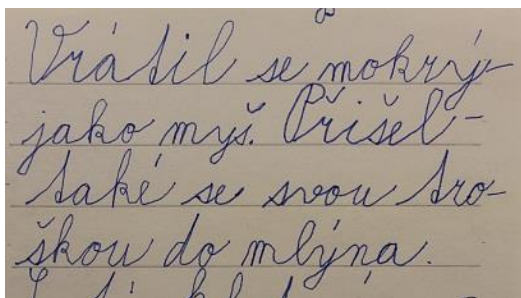 Vrátil se mokrý
jako myš. Přišel
také se svou tro-
škou do mlýna.